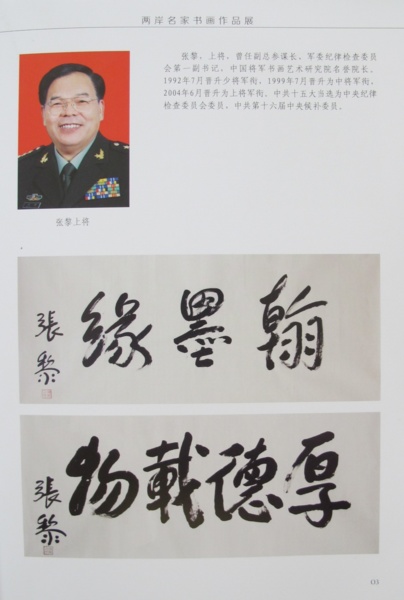 两岸名家书画作品展
张黎，上将，曾任副总参谋长、军委纪律检查委员
会第一副书记，中国将军书画艺术研究院名誉院长，
1992年7月晋升少将军衔，1999年7月晋升为中将军衔，
2004年6月晋升为上将军衔。中共十五大当选为中央纪律
检查委员会委员，中共第十六届中央候补委员。
张黎上将
翰墨缘
張黎
厚德載物
張黎
03